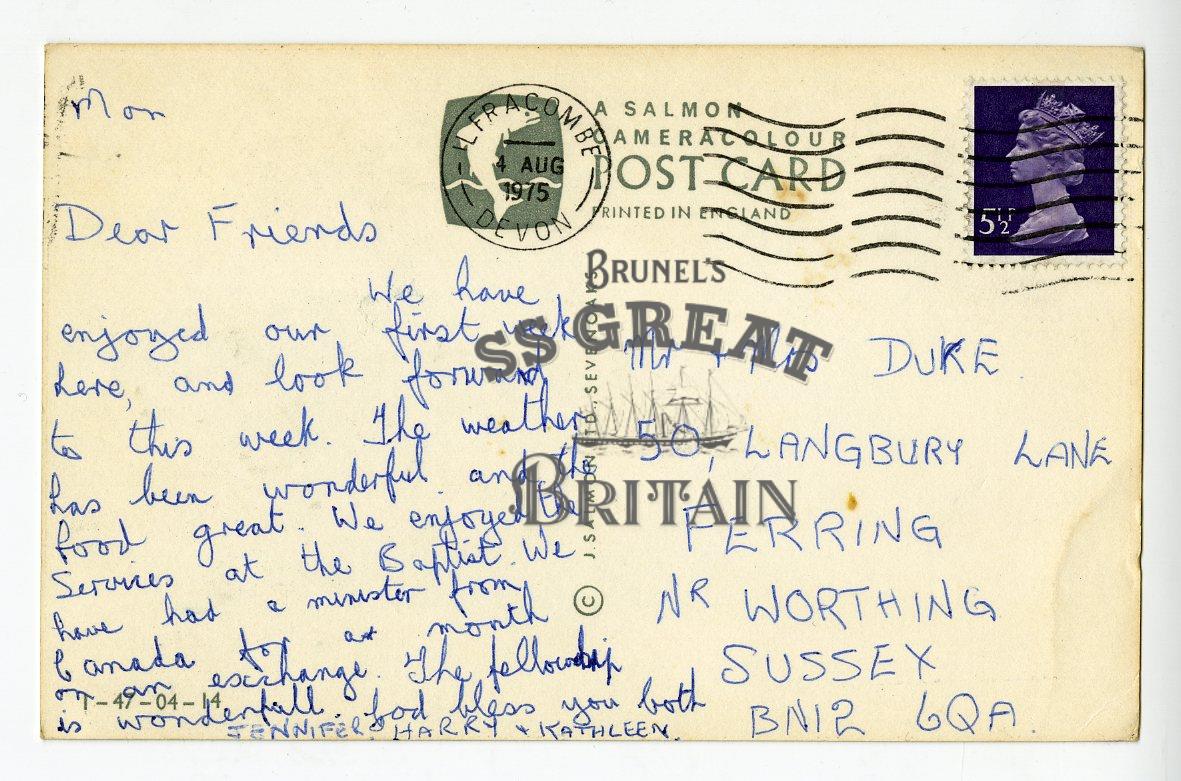 Mon
Dear Friends
We have
enjoyed our first week
here, and look forward
to this week. The weather
has been wonderful and the
food great. We enjoyed the
Services at the Baptist. We
have had a minister from
Canada for a month
on an exchange. The fellowship
is wonderfull. God bless you both
JENNIFER, HARRY + KATHLEEN.
T-47-04-14
ILFRACOMBE
4 AUG
1975
DEVON
A SALMON
CAMERACOLOUR
POST CARD
PRINTED IN ENGLAND
5½P
© J. SALMON LTD., SEVENOAKS
BRUNEL'S
SS GREAT
BRITAIN
Mr + Mrs DUKE
50, LANGBURY LANE
FERRING
NR WORTHING
SUSSEX
BN12 6QA.